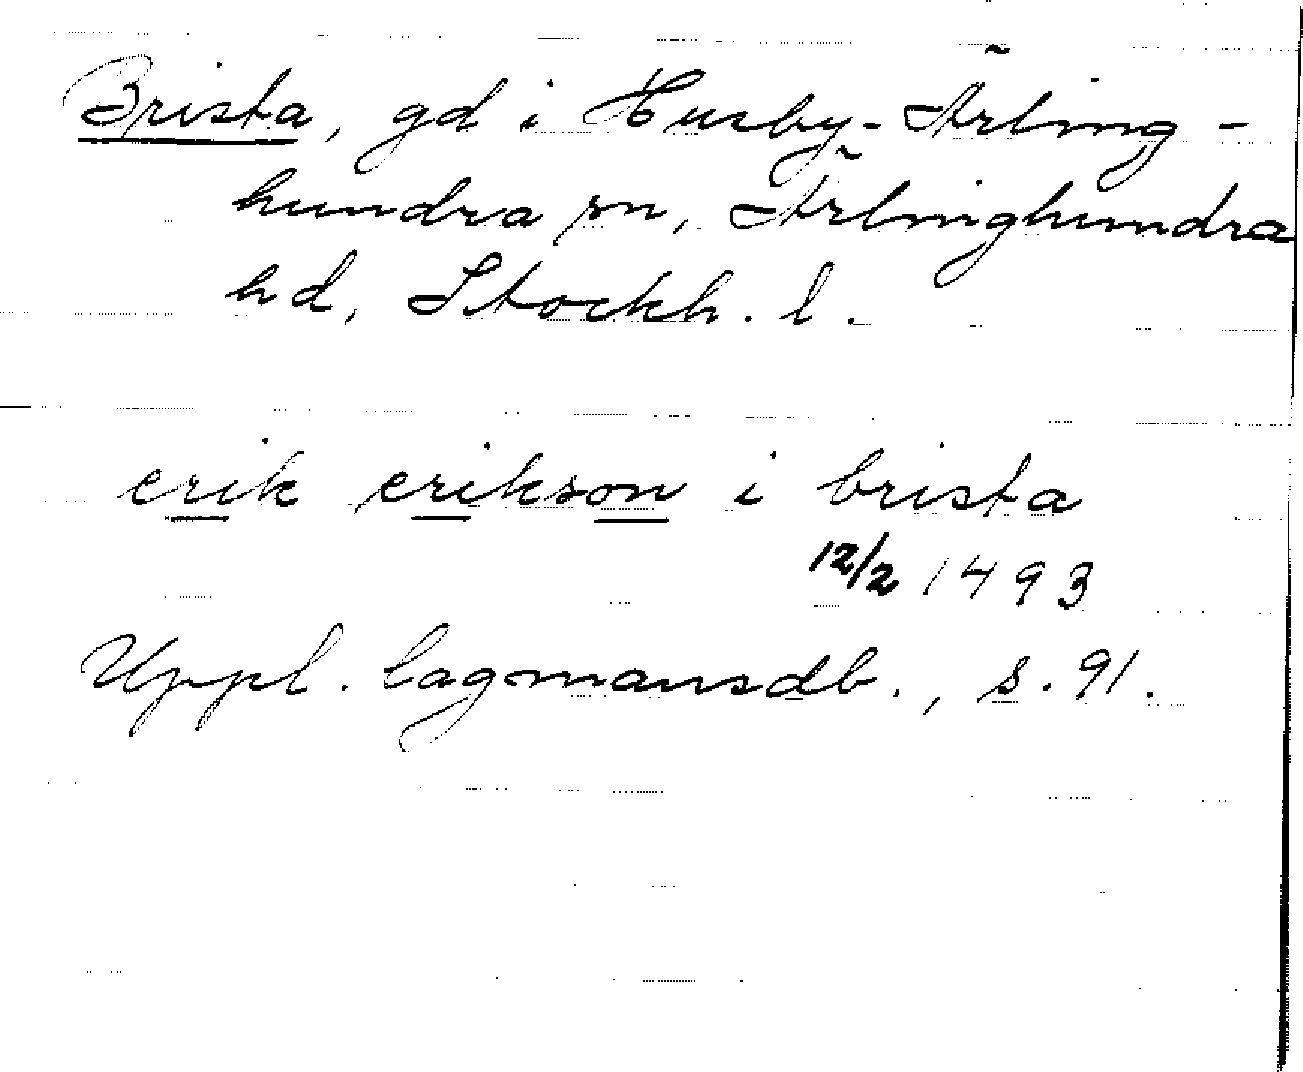 Brista, gd i Husby-Ärling-
hundra sn, Ärlinghundra
hd, Stockh. l.
erik erikson i brista
12/2 1493
Uppl. lagmansdb., s. 91.